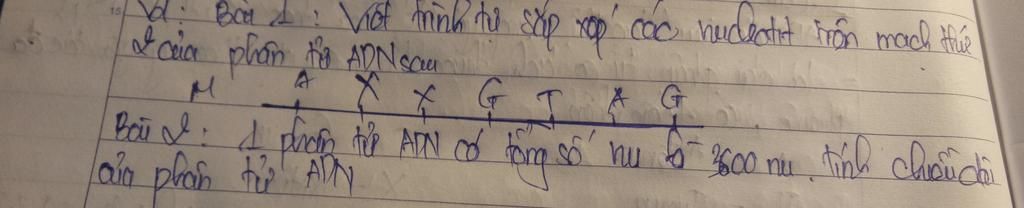 Vd: Bài 1: Viết trình tự sắp xếp các nucleotit trên mạch thứ
2 của phân tử ADN sau
M A X X G T A G
Bài 2: 1 phân tử ADN có tổng số nu là 3600 nu. tính chiều dài
của phân tử ADN